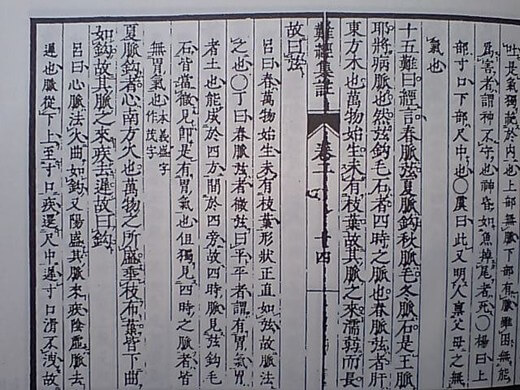 吐是氣獨竝於內也上部無脈下部有脈雖困無能
爲害者謂神不守也神昏如魚掉尾者死〇楊曰上
部寸口下部尺中也〇虞曰此又明人稟父母之無
氣也
十五難曰經言春脈弦夏脈鈎秋脈毛冬脈石是王脈
耶將病脈也然弦鈎毛石者四時之脈也春脈弦者肝
東方木也萬物始生未有枝葉故其脈之來濡弱而長
難經集註 卷二 十四
故曰弦
呂曰春萬物始生未有枝葉形狀正直如弦故脈法
之也〇丁曰春脈弦者微弦曰平平者謂有胃氣胃
者土也能成於四方間於四旁故四時脈見弦鈎毛
石皆當微見卽是有胃氣也但獨見四時之脈者皆
無胃氣也 本義盛字
作茂字
夏脈鈎者心南方火也萬物之所盛垂枝布葉皆下曲
如鈎故其脈之來疾去遲故曰鈎
呂曰心脈法火曲如鈎又陽盛其脈來疾陰虛脈去
遲也脈從下上至寸口疾還尺中遲寸口滑不洩故